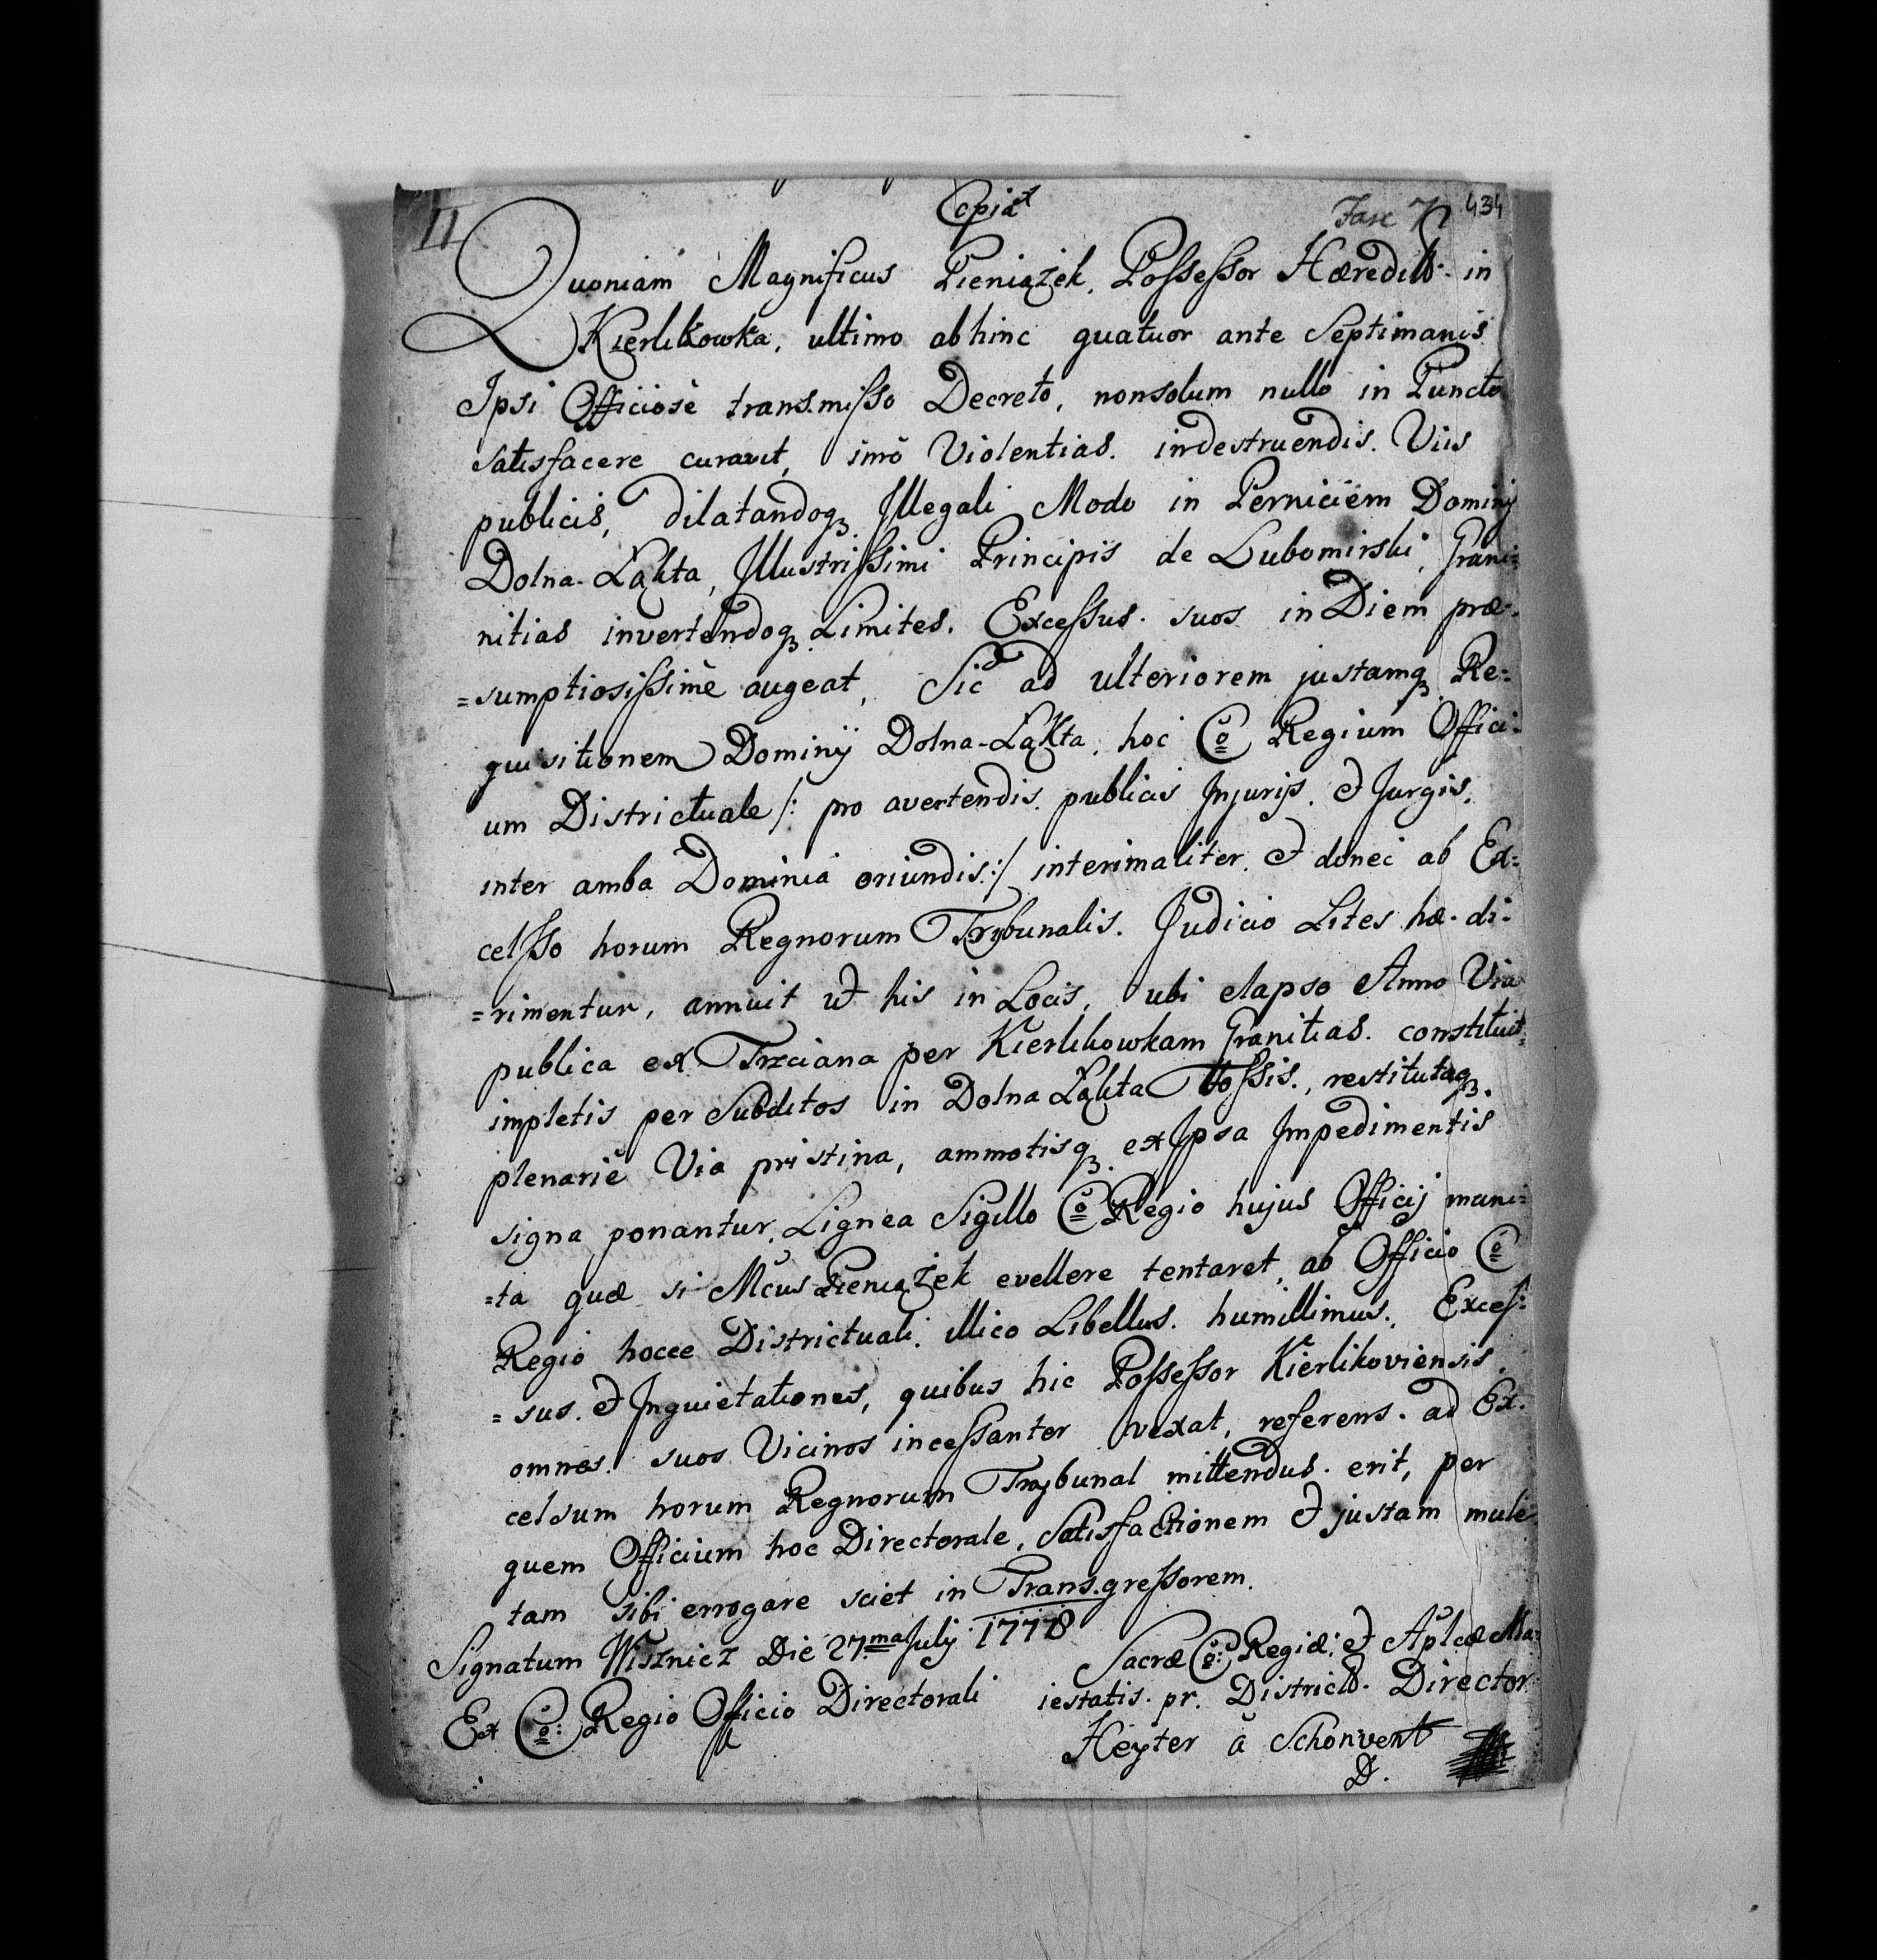 Copia
II
Fasc 7
434
Quoniam Magnificus Pieniążek, Possessor Hæredit: in
Kierlikowka, ultimo abhinc quatuor ante Septimanis
Ipsi Officiosè transmisso Decreto, nonsolum nullo in Puncto
satisfacere curavit, imò Violentias. indestruendis. Viis
publicis, dilatandoq₃ Illegali Modo in Perniciem Dominij
Dolna-Łąkta, Illustrissimi Principis de Lubomirski, Grani=
nitias invertendoq₃ Limites. Excessus. suos in Diem præ-
=sumptiosissimè augeat, Sic ad ulteriorem justamq₃ Re=
quisitionem Dominij Dolna-Łąkta, hoc Cō Regium Offici=
um Districtuale /: pro avertendis. publicis Injurijs. et Jurgis,
inter amba Dominia oriundis :/ interimaliter. et donec ab Ex=
celsso horum Regnorum Trybunalis. Judicio Lites hæ. di=
=rimentur, annuit ut his in Locis, ubi elapso Anno Via
publica ex Trzciana per Kierlikowkam Granitias. constituit=
impletis per Subditos in Dolna Łąkta Fossis., restitutaq₃.
plenariè Via pristina, ammotisq₃ ex Ipsa Impedimentis
signa ponantur. Lignea Sigillo Cō Regio hujus Officij muni=
=ta quæ si Mcus Pieniążek evellere tentaret, ab Officio Cō
Regio hocce Districtuali. illico Libellus. humillimus., Exces=
=sus. et Inquietationes, quibus hic Possessor Kierlikoviensis.
omnes. suos Vicinos incessanter vexat, referens. ad Ex.
celsum horum Regnorum Trybunal mittendus. erit, per
quem Officium hoc Directorale, Satisfactionem et justam mulc
tam sibi errogare sciet in Transgressorem.
Signatum Wisznicz Die 27ma July 1778
Ex Cō: Regio Officio Directorali
Sacræ Cō: Regiæ: et Aplcæ Ma=
iestatis. pr. District. Director
Heyter à Schonvent
D.